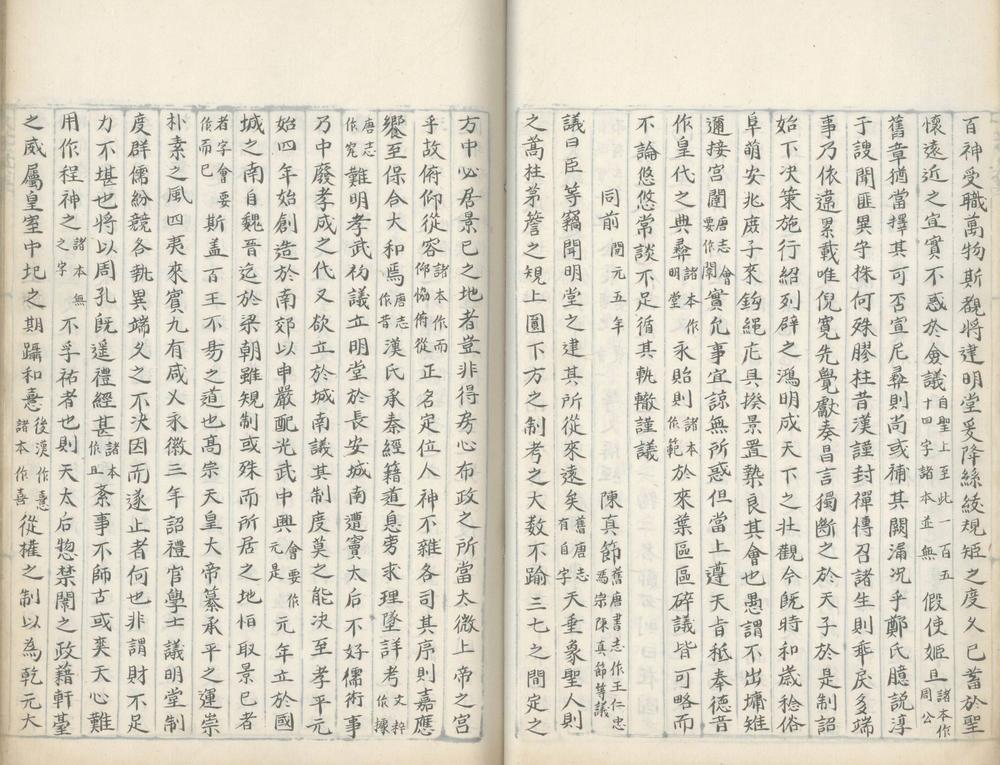 百神受職萬物斯覩將建明堂爰降絲綍規矩之度久已蓄於聖
懷遠近之宜實不惑於僉議自聖上至此一百五十四字諸本並無假使姬旦諸本作周公
舊章猶當擇其可否宣尼彝則尚或補其闕漏况乎鄭氏臆説淳
于謏聞匪異守株何殊膠柱昔漢謹封禪慱召諸生則乖戾多端
事乃依違累載唯倪寛先覺獻奏昌言獨斷之於天子於是制詔
始下決策施行紹列辟之鴻明成天下之壯觀今既時和歲稔俗
阜萌安兆庶子來鉤繩庀具揆景置槷良其會也愚謂不出墉雉
邇接宮闈唐志會要作闈實允事宜諒無所惑但當上遵天㫖秪奉德音
作皇代之典彝諸本作明堂永貽則諸本作範於來葉區區碎議皆可略而
不論悠悠常談不足循其軌轍謹議
同前開元五年 陳真節舊唐書志作王仁忠馮宗陳真節等議
議曰臣等竊聞明堂之建其所從來遠矣舊唐志有自字天垂象聖人則
之蒿柱茅簷之規上圓下方之制考之大數不踰三七之間定之
方中必居景巳之地者豈非得房心布政之所當太微上帝之宮
乎故俯仰從容諸本作而仰恊俯從正名定位人神不雜各司其序則嘉應
饗至保合大和焉唐志作昔漢氏承秦經籍道息旁求理墜詳考文粹作據
唐志作究難明孝武初議立明堂於長安城南遭竇太后不好儒術事
乃中廢孝成之代又欲立於城南議其制度莫之能決至孝平元
始四年始創造於南郊以申嚴配光武中興會要作是元元年立於國
城之南自魏晋迄於梁朝雖規制或殊而所居之地怕取景巳者
者字會要作而已斯盖百王不易之道也髙宗天皇大帝纂承平之運崇
朴素之風四夷來賓九有咸乂永徽三年詔禮官學士議明堂制
度群儒紛競各執異端久之不決因而遂止者何也非謂財不足
力不堪也將以周孔旣遥禮經甚諸本作且紊事不師古或爽天心難
用作程神之諸本無之字不孚祐者也則天太后惣禁闈之政藉軒臺
之威屬皇室中圮之期躡和憙後漢作憙諸本作喜從權之制以為乾元大